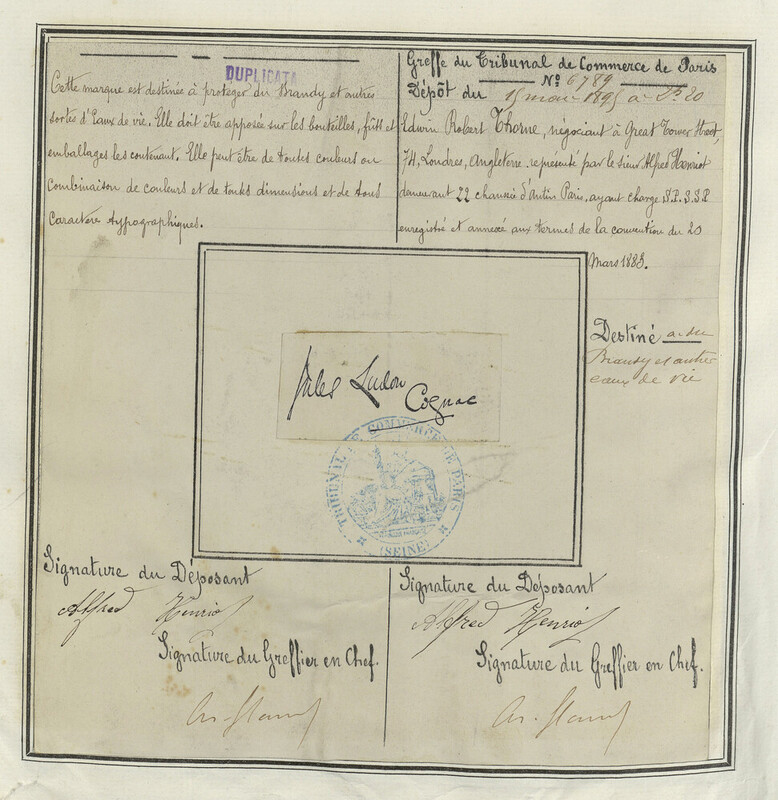 DUPLICATA
Cette marque est destinée à protéger du Brandy et autres
sortes d'Eaux de vie. Elle doit être apposée sur les bouteilles, fûts et
emballages les contenant. Elle peut être de toutes couleurs ou
combinaison de couleurs et de toutes dimensions et de tous
caractère typographiques.
Greffe du Tribunal de Commerce de Paris
Nº 6789
Dépôt du 15 mai 1895 à 2h20
Edwin Robert Thorne, négociant à Great Tower Street,
74, Londres, Angleterre représenté par le sieur Alfred Henriot
demeurant 22 chaussée d'Antin Paris, ayant charge S.P. S.S.P
enregistré et annexé aux termes de la convention du 20
Mars 1883.
Destiné à du
Brandy et autres
eaux de vie
Jules Ludon
Cognac
TRIBUNAL DE COMMERCE DE PARIS
(SEINE)
Signature du Déposant
Alfred Henriot
Signature du Greffier en Chef.
Signature du Déposant
Alfred Henriot
Signature du Greffier en Chef.